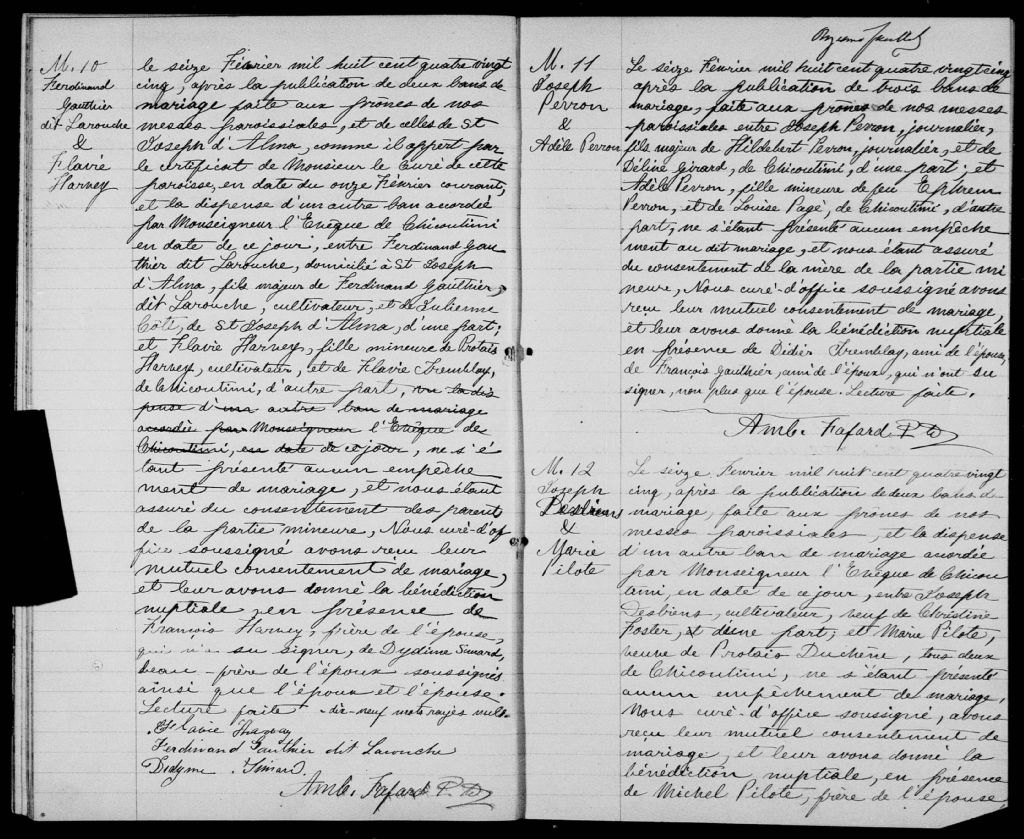 M. 10
Ferdinand
Gauthier
dit Larouche
&
Flavie
Harvey
le seize Février mil huit cent quatre vingt
cinq, après la publication de deux bans de
mariage faite aux prônes de nos
messes paroissiales, et de celles de St
Joseph d'Alma, comme il appert par
le certificat de Monsieur le Curé de cette
paroisse, en date du onze Février courant,
et la dispense d'un autre ban accordée
par Monseigneur l'Evêque de Chicoutimi
en date de ce jour, entre Ferdinand Gau
thier dit Larouche, domicilié à St Joseph
d'Alma, fils majeur de Ferdinand Gauthier
dit Larouche, cultivateur, et de Julienne
Côté, de St Joseph d'Alma, d'une part;
et Flavie Harvey, fille mineure de Protais
Harvey, cultivateur, et de Flavie Tremblay,
de Chicoutimi, d'autre part, vu la dis
pense d'un autre ban de mariage
accordée par Monseigneur l'Evêque de
Chicoutimi, en date de ce jour, ne s'é
tant présenté aucun empêche
ment de mariage, et nous étant
assuré du consentement des parents
de la partie mineure, Nous curé-d'of
fice soussigné avons reçu leur
mutuel consentement de mariage,
et leur avons donné la bénédiction
nuptiale en présence de
François Harvey, frère de l'épouse,
qui n'a su signer, de Dydime Simard,
beau-frère de l'époux soussignés
ainsi que l'époux et l'épouse.
Lecture faite. dix-neuf mots rayés nuls.
Flavie Harvay
Ferdinand Gauthier dit Larouche
Didyme Simard.
Amb. Fafard Ptre
M. 11
Joseph
Perron
&
Adèle Perron
Le seize Février mil huit cent quatre vingt cinq
après la publication de trois bans de
mariage, faite aux prônes de nos messes
paroissiales entre Joseph Perron, journalier,
fils majeur de Hildebert Perron, journalier, et de
Déline Girard, de Chicoutimi, d'une part; et
Adèle Perron, fille mineure de feu Ephrem
Perron, et de Louise Pagé, de Chicoutimi, d'autre
part, ne s'étant présenté aucun empêche
ment au dit mariage, et nous étant assuré
du consentement de la mère de la partie mi
neure, Nous curé-d'office soussigné avons
reçu leur mutuel consentement de mariage,
et leur avons donné la bénédiction nuptiale
en présence de Didier Tremblay, ami de l'époux,
de François Gauthier, ami de l'époux, qui n'ont su
signer, non plus que l'épouse. Lecture faite.
Amb. Fafard Ptre
M. 12
Joseph
Desbiens
&
Marie
Pilote
Le seize Février mil huit cent quatre vingt
cinq, après la publication de deux bans de
mariage, faite aux prônes de nos
messes paroissiales, et la dispense
d'un autre ban de mariage accordée
par Monseigneur l'Evêque de Chicou
timi, en date de ce jour, entre Joseph
Desbiens, cultivateur, veuf de Christine
Foster, d'une part; et Marie Pilote,
veuve de Protais Duchêne, tous deux
de Chicoutimi, ne s'étant présenté
aucun empêchement de mariage,
Nous curé-d'office soussigné, avons
reçu leur mutuel consentement de
mariage, et leur avons donné la
bénédiction nuptiale, en présence
de Michel Pilote, frère de l'épouse,